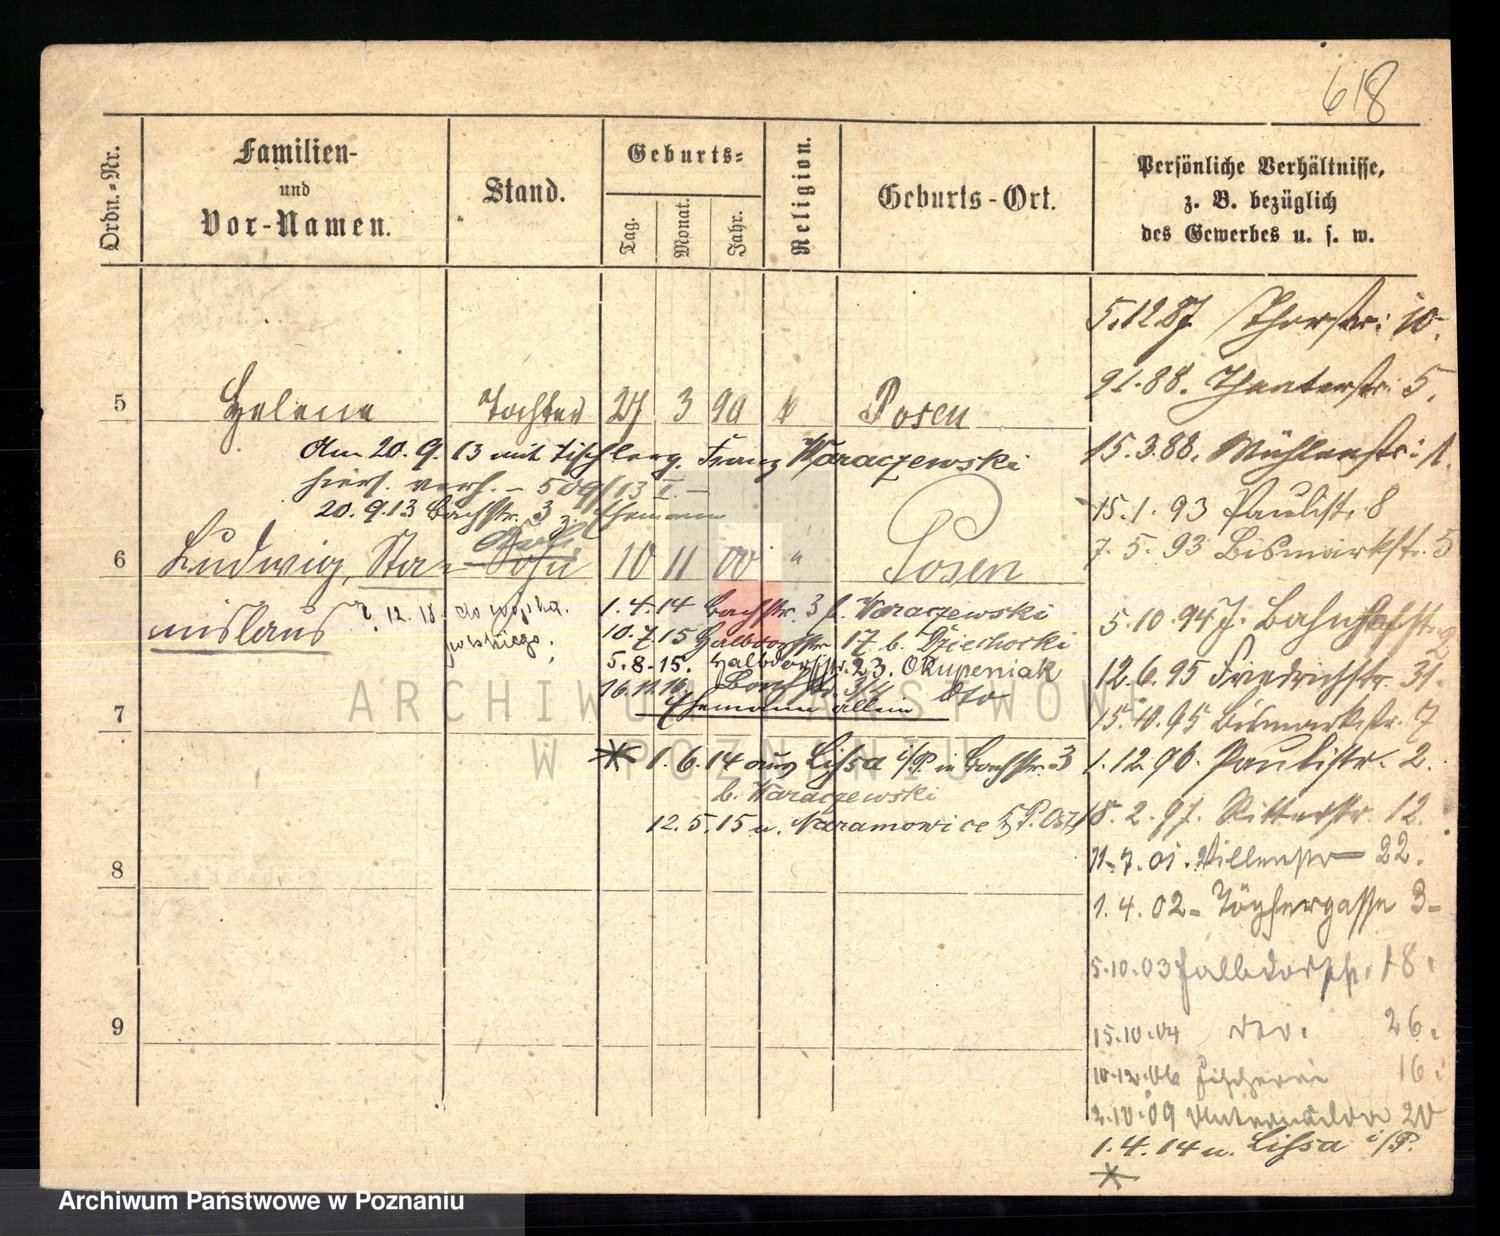 618
Ordn.-Nr.
Familien-
und
Vor-Namen.
Stand.
Geburts-
Tag.
Monat.
Jahr.
Religion.
Geburts-Ort.
Persönliche Verhältnisse,
z. B. bezüglich
des Gewerbes u. s. w.
5 Helene Tochter 27 3 90 k Posen
Am 20.9.13 mit Tischlerg. Franz Waraczewski
hiers. verh. – 509/13 I. –
20.9.13 Bachstr. 3 z. Ehemann
6 Ludwig, Sta- Sohn 10 11 00 " Posen
mislaus
2.12.18. do wojska
polskiego;
1.4.14 Bachstr. 3 b. Waraczewski
10.7.15 Halbdorfstr 17 b. Dziechocki
5.8.15. Halbdorfstr. 23. Okupeniak
16.11.16. 3/4 dto
Ehemann allein
7
* 1.6.14 aus Lissa i/P. in Bachstr. 3
b. Waraczewski
12.5.15 u. Naramowice P. Ost
8
9
5.12.87 Thorstr: 10.
9.1.88. Theaterstr: 5.
15.3.88. Mühlenstr: 1.
15.1.93 Paulistr. 8
7.5.93 Bismarkstr. 5
5.10.94 Bahnhofst
12.6.95 Friedrichstr. 31.
15.10.95 Bismarkstr. 7
1.12.96. Paulistr. 2.
18.2.97. Ritterstr. 12.
11.7.01. Villenstr 22.
1.4.02 - Töpfergasse 3-
5.10.03 Halbdorfstr. 18.
15.10.04 dto. 26.
10.12.06 Fischerei 16.
2.10.09 Unterwilda 20
1.4.14 u. Lissa i/P.
*
ARCHIWUM PAŃSTWOWE
W POZNANIU
Archiwum Państwowe w Poznaniu